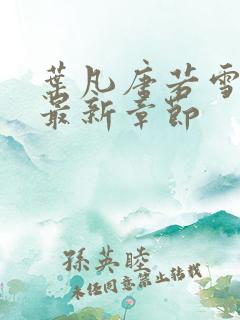 葉凡唐若雪
最新章節
孫英睦
未经同意禁止转载